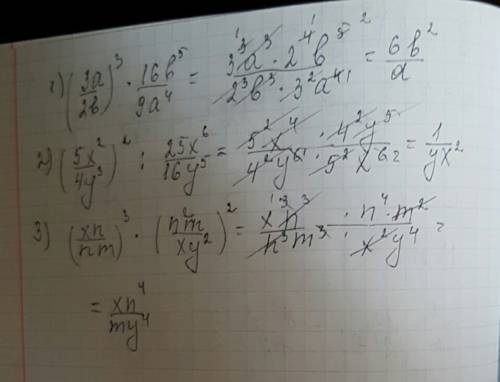 1) (3a/2b)³ · 16b⁵/9a⁴ = 3³a³ · 2⁴b⁵ / 2³b³ · 3²a⁴ = 6b²/a
2) (5x²/4y³)² : 25x⁶/16y⁵ = 5²x⁴/4²y⁶ · 4²y⁵/5²x⁶ = 1/yx²
3) (xn/nm)³ · (n²m/xy²)² = x³n³/n³m³ · n⁴ · m²/x²y⁴ =
= xn⁴/my⁴